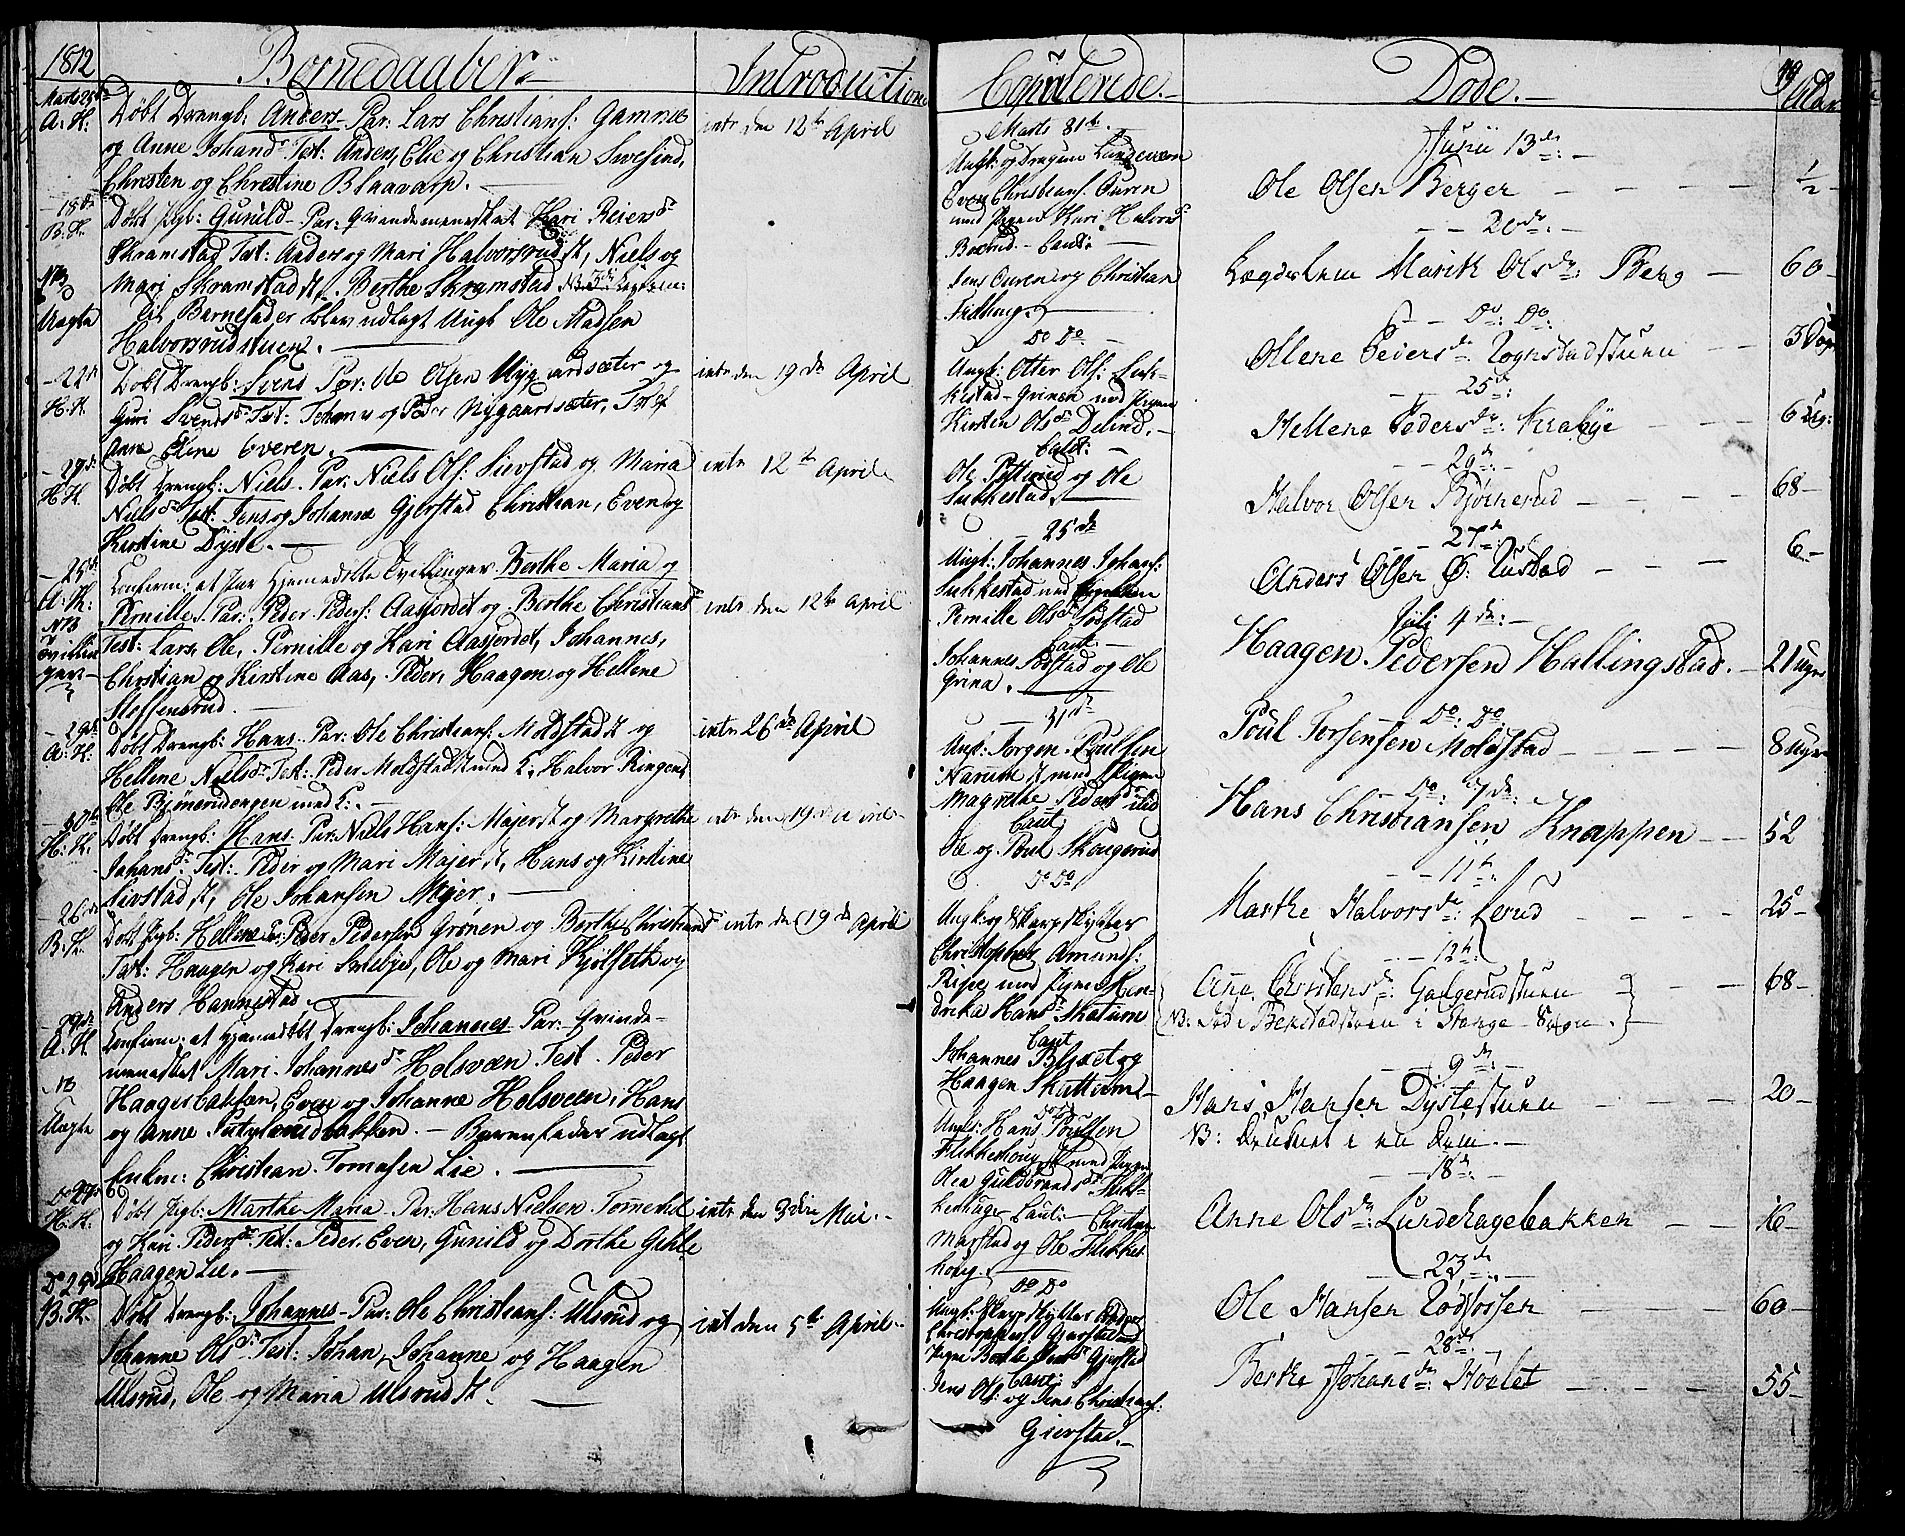 1812
Børnedaaber.
Marts 29de
A. K.
Døbt Drengb: Anders. Par: Lars Christians: Gamnes
og Anne Johansd. Test: Anders, Elie og Christian Svesind,
Christen og Christine Blaavarp.
18de
B. K.
Døbt Pigb: Gunild. Par: Qvindemennesket Kari Reiersd.
Skramstad Test: Anders og Mari Halvorsrud St, Niels og
Mari Skramstad St, Berthe Skramstad
NB
Uægte
til Barnefader blev udlagt Ungk Ole Madsen
Halvorsrudstuen.
22de
H. K.
Døbt Drengb: Svend Par: Ole Olsen Nygaardsæter og
Guri Svensd. Test: Johane og Peder Nygaardsæter,
Anne Elene Everen.
29de
H. K.
Døbt Drengb: Niels. Par: Niels Ols: Sivstad og Maria
Nielsd. Test: Jens og Johanne Gjerstad Christian, Even og
Kirstine Dyste.
25de
A. K.
NB
Tvillinger
Confirm: et Par Hjemedøbte Tvillinger Berthe Maria og
Pernille. Par: Peder Peders: Aasjordet og Berthe Christiansd.
Test: Lars, Ole, Pernille og Kari Aasjordet, Johannes,
Christian og Kirstine Aas, Peder, Haagen og Hellene
Steffensrud.
29de
A. K.
Døbt Drengb: Hans. Par: Ole Christians: Moldstad St og
Hellene Nielsd. Test: Peder Moldstad St med K: Halvor Ringen,
Ole Bjørnerudengen med K:.
H. K.
Døbt Drengb: Hans. Par: Niels Hans: Majer St og Margrethe
Johansd. Test: Peder og Mari Majer St, Hans og Kirstine
Sivstad St, Ole Johansen Majer.
26de
B. K.
Døbt Pigb: Hellene Par: Peder Pedersen Grønen og Berthe Christiansd.
Test: Haagen og Kari Smebye, Ole og Mari Kjølseth og
Anders Hannestad.
29de
A. K.
NB
Uægte
Confirm: et Hjemedøbt Drengb: Johannes. Par: Qvinde-
mennesket Mari Johannesd. Holsveen Test: Peder
Haagesbakken, Even og Johanne Holsveen, Hans
og Anne bakken. – Barnefader udlagt
Enkm: Christian Tomasen Lie.
Do 27de
H. K.
Døbt Pigb: Marthe Maria. Par: Hans Nielsen Tømerhol
og Kari Pedersd. Test: Peder, Even, Gunild og Dorthe Gehle
Haagen Lie.
Do 29de
B. K.
Døbt Drengb: Johannes. Par: Ole Christians: Ulsrud og
Johanne Olsd. Test: Johan, Johanne og Haagen
Ulsrud, Ole og Maria Ulsrud St.
Introductione
intr den 12te April
intr den 19de April
intr 12te April
intr den 12te April
intr 26de April
intr den 19de April
intr den 19de April
intr den 3die Mai.
int den 5te April.
Copulerede.
Marts 31te.
Ungk: og Dragun
Even Christians: Curen
med Pigen Kari Halvorsd.
Berud. Caut:
Jens Curen og Christian
Do Do
Ungk: Otter Ols: Luk-
kestad-Grinen med Pigen
Kirsten Olsd. Delind.
Caut:
Ole og Ole
Lukkestad.
25de
Ungk: Johannes Johans:
Lukkestad med
Pernille Olsd. Sodstad
Caut:
Johannes Sodstad og Ole
Grina.
31te
Ungk: Jorgen Poulsen
Narum St med Pigen
Magrethe Pedersd.
Caut
Ole og Poul Skougerud
Do Do
Ungk: og Skarpskytter
Christopher Amunds:
Ripe med Pigen Hen-
drika Hansd. Skattum
Caut
Johannes og
Haagen Skattum.
Do Do
Ungk: Hans Poulsen
Flekkehoug St med Pigen
Olea Guldbrandsd. Flek-
kehuger Caut: Christian
Marstad og Ole Flekke-
houg.
Do Do
Ungk: Skarpskytter
Christophers: Gjerstad med
Pigen Berthe Gjerstad
Caut:
Jens Ols: og Jens Christians:
Gierstad.
Døde.
Alder
49
Junii 13de
Ole Olsen Berger ½
20de
Lægdslem Marik Olsdr: Berg 60
Do: Do:
Ollene Pedersdr: Sognstadstuen 3 Dage
25de
Hellene Pedersdr: Krabye 6 Dg:
26de
Halvor Olsen Bjørnerud 68
27de
Anders Olsen Ø: Rustad 6
Juli 4de:
Haagen Pedersen Hallingstad. 21 uger
Do: Do:
Poul Torsensen Moldstad 8 uger
Do: 7de:
Hans Christiansen Knappen 52
11te
Marthe Halvorsdr: Lerud 25
12te
Ane Christensdr: Galgerudstuen 68
NB: Død i Bekestadstuen i Stange Sogn.
9de
Hans Hansen Dystestuen 20
NB: Druknet i en Dam.
18de
Anne Olsdr: Lundehagebakken 16
23de
Ole Hansen Rødfossen 60
28de
Berthe Johansdr: Hoelet 55